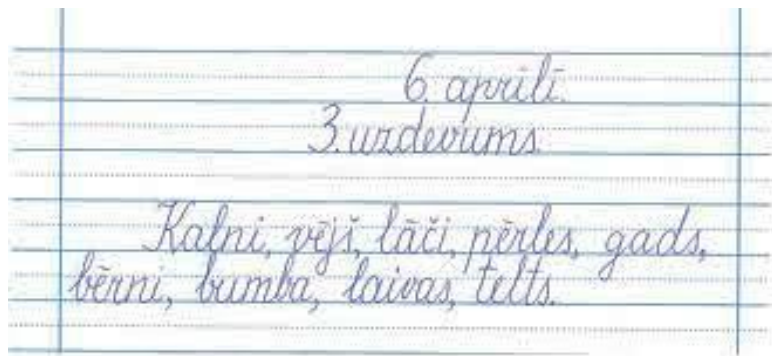 6. aprīlī.
3. uzdevums.
Kalni, vējš, lāči, pērles, gads,
bērni, bumba, laivas, telts.